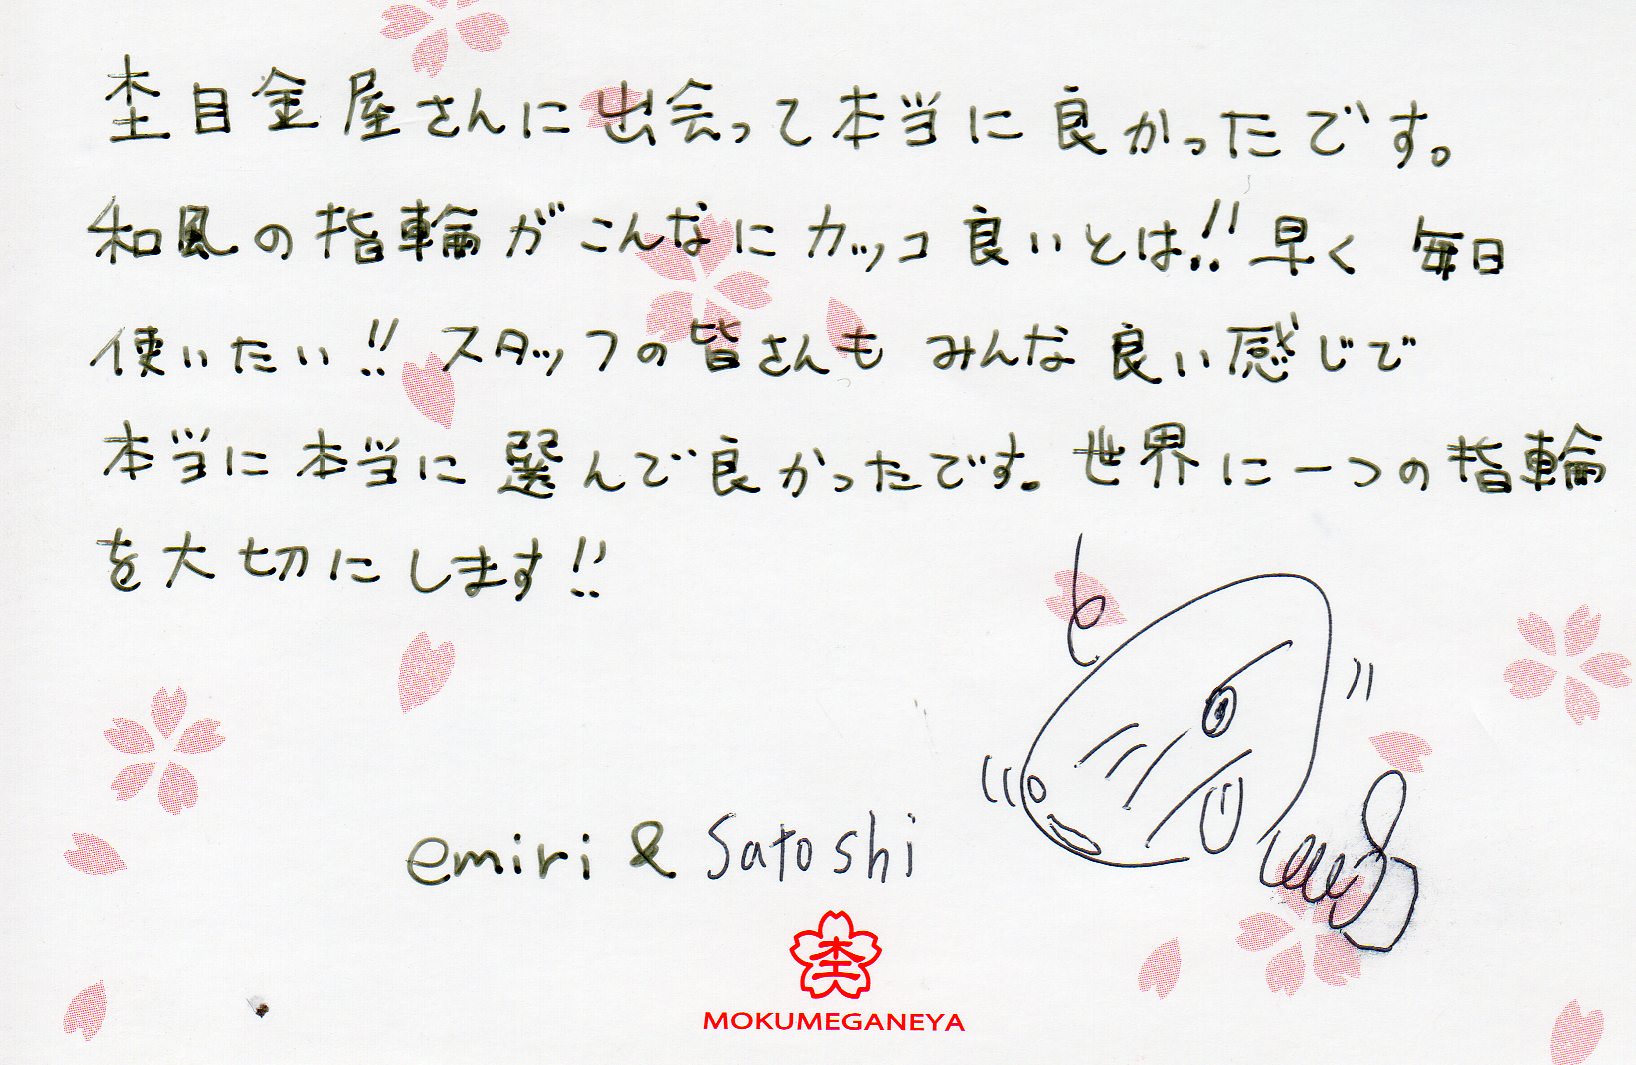 杢目金屋さんに出会って本当に良かったです。
和風の指輪がこんなにカッコ良いとは!!早く毎日
使いたい!!スタッフの皆さんもみんな良い感じで
本当に本当に選んで良かったです。世界に一つの指輪
を大切にします!!
emiri & Satoshi
杢
MOKUMEGANEYA